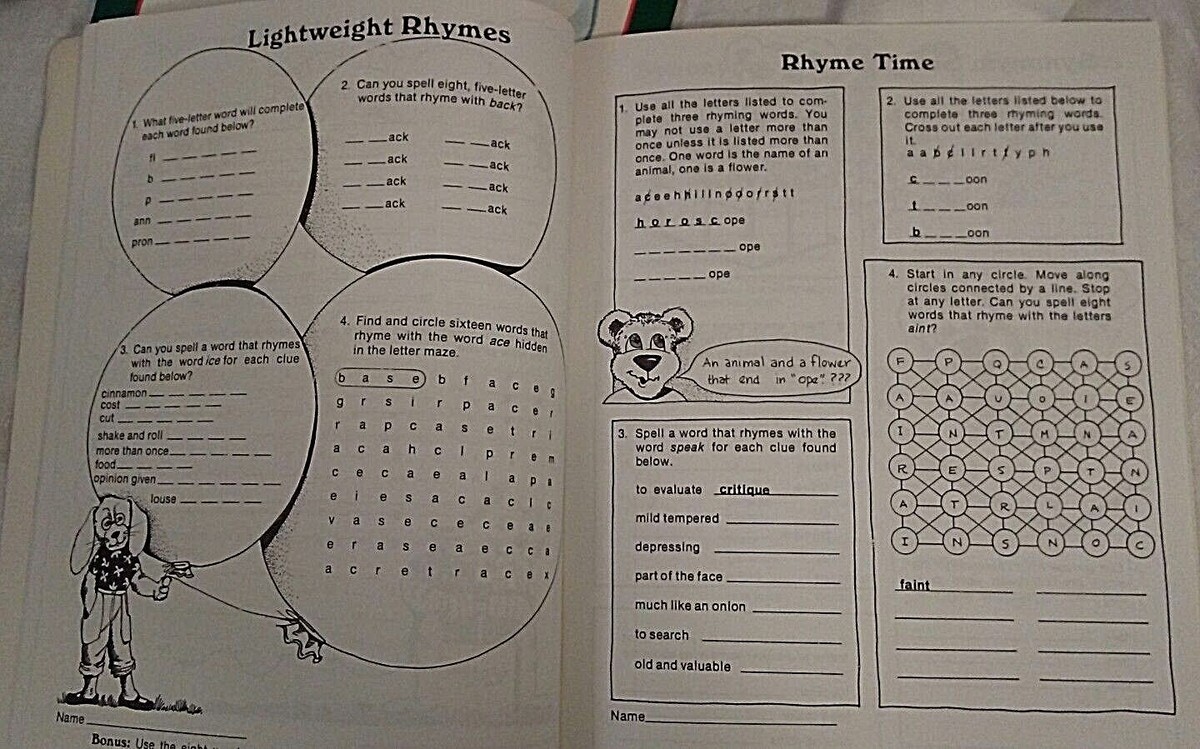 Lightweight Rhymes
1. What five-letter word will complete
each word found below?
fl _ _ _ _ _
b _ _ _ _ _
p _ _ _ _ _
ann _ _ _ _ _
pron _ _ _ _ _
2. Can you spell eight, five-letter
words that rhyme with back?
_ _ ack _ _ ack
_ _ ack _ _ ack
_ _ ack _ _ ack
_ _ ack _ _ ack
3. Can you spell a word that rhymes
with the word ice for each clue
found below?
cinnamon _ _ _ _ _
cost _ _ _ _ _
cut _ _ _ _ _
shake and roll _ _ _ _
more than once _ _ _ _ _
food _ _ _ _
opinion given _ _ _ _ _ _
louse _ _ _ _ _
4. Find and circle sixteen words that
rhyme with the word ace hidden
in the letter maze.
b a s e b f a c e g
g r s i r p a c e r
r a p c a s e t r i
a c a h c l p r e m
c e c a e a l a p a
e i e s a c a c l c
v a s e c e c e a e
e r a s e a e c c a
a c r e t r a c e x
Name
Bonus: Use the eight
Rhyme Time
1. Use all the letters listed to com-
plete three rhyming words. You
may not use a letter more than
once unless it is listed more than
once. One word is the name of an
animal, one is a flower.
a c e e h h i l l n o o o r r s t t
h o r o s c ope
_ _ _ _ _ _ _ ope
_ _ _ _ _ ope
An animal and a flower
that end in "ope". ???
2. Use all the letters listed below to
complete three rhyming words.
Cross out each letter after you use
it.
a a b c l l r t t y p h
c _ _ _ oon
t _ _ _ oon
b _ _ _ oon
3. Spell a word that rhymes with the
word speak for each clue found
below.
to evaluate critique
mild tempered
depressing
part of the face
much like an onion
to search
old and valuable
Name
4. Start in any circle. Move along
circles connected by a line. Stop
at any letter. Can you spell eight
words that rhyme with the letters
aint?
F P Q C A S
A A U O I E
I N T M N A
R E S P T N
A T R L A I
I N S N O C
faint